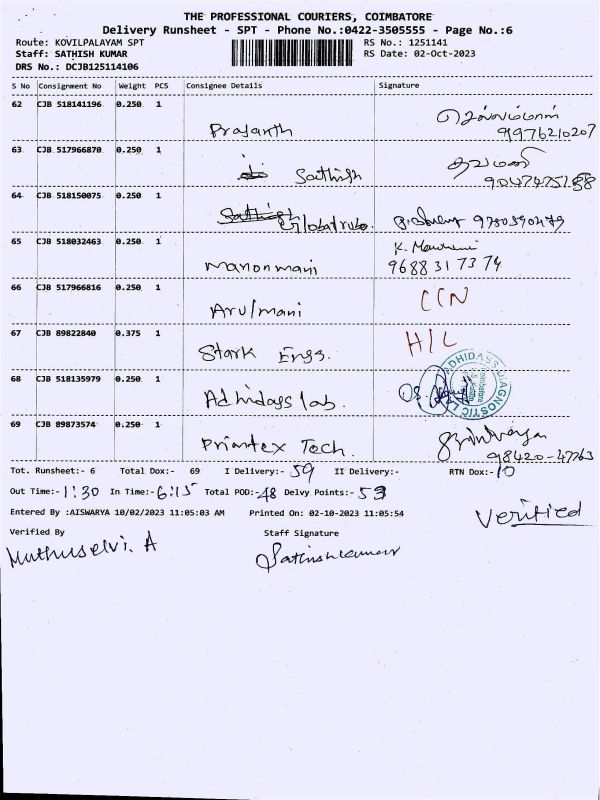 THE PROFESSIONAL COURIERS, COIMBATORE
Delivery Runsheet - SPT - Phone No.:0422-3505555 - Page No.:6
Route: KOVILPALAYAM SPT RS No.: 1251141
Staff: SATHISH KUMAR RS Date: 02-Oct-2023
DRS No.: DCJB125114106
S No Consignment No Weight PCS Consignee Details Signature
62 CJB 518141196 0.250 1 Prasanth
9976210207
63 CJB 517966870 0.250 1 Sathish
64 CJB 518150075 0.250 1 9750590479
65 CJB 518032463 0.250 1 Manonmani K.
9688317374
66 CJB 517966816 0.250 1 Arulmani CCN
67 CJB 89822840 0.375 1 Stark Engg. H/L
68 CJB 518135979 0.250 1 Adhidass lab. ADHIDASS DIAGNOSTIC LAB
69 CJB 89873574 0.250 1 Printex Tech.
98420-47763
Tot. Runsheet:- 6 Total Dox:- 69 I Delivery:- 59 II Delivery:- RTN Dox:- 10
Out Time:- 1:30 In Time:- 6:15 Total POD:- 48 Delvy Points:- 53
Entered By :AISWARYA 10/02/2023 11:05:03 AM Printed On: 02-10-2023 11:05:54 Verified
Verified By Staff Signature
Muthuselvi. A Sathishkumar